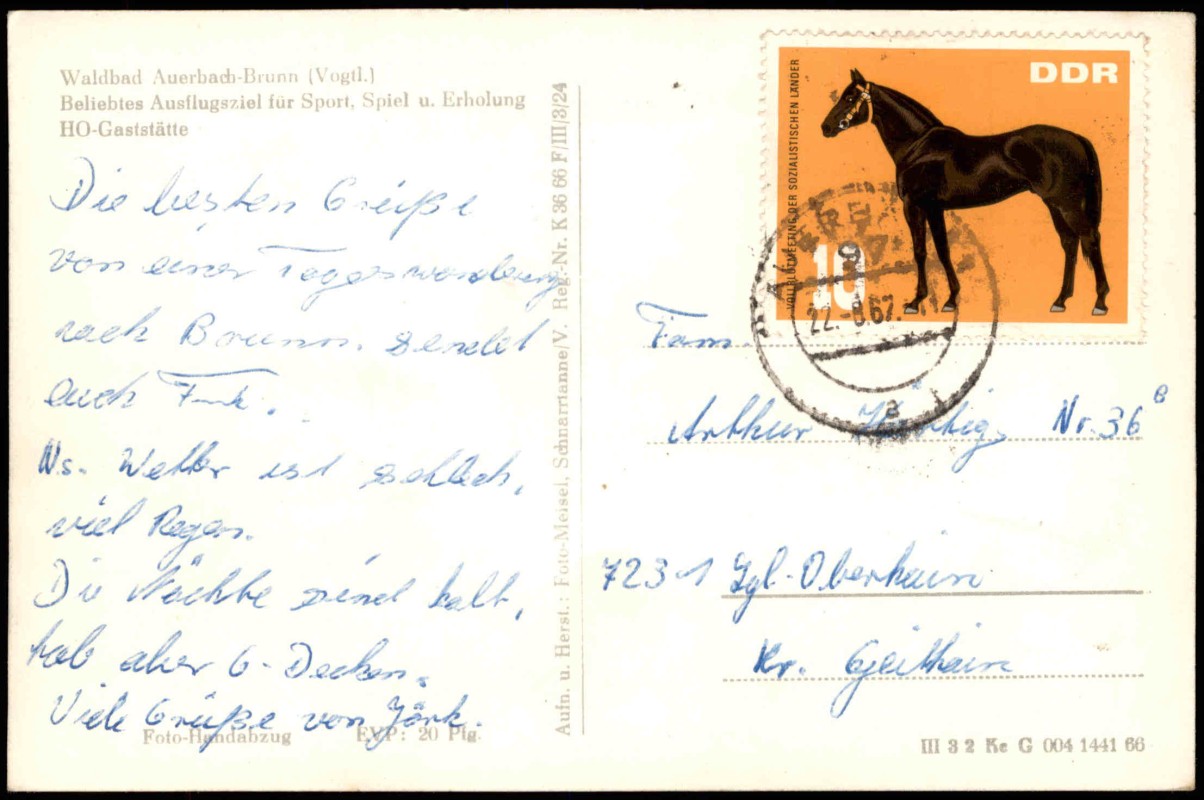 Waldbad Auerbach-Brunn (Vogtl.)
Beliebtes Ausflugsziel für Sport, Spiel u. Erholung
HO-Gaststätte
Die besten Grüße
von einer Tageswanderung
nach Brunn. sendet
euch Frank.
Ns. Wetter ist schlech,
viel Regen.
Die Nächte sind kalt,
hab aber 6-Decken.
Viele Grüße von Jörk.
Foto-Handabzug EVP: 20 Pfg.
Aufn. u. Herst.: Foto-Meisel, Schnarrtanne/V. Reg.-Nr. K 36 66 F/III/3/24
DDR
VOLLBLUTMEETING DER SOZIALISTISCHEN LÄNDER
10
22.-8.67.-11
a
Fam.
Arthur Nr. 36
7231 Oberhain
Kr. Geithain
III 3 2 Ke G 004 1441 66